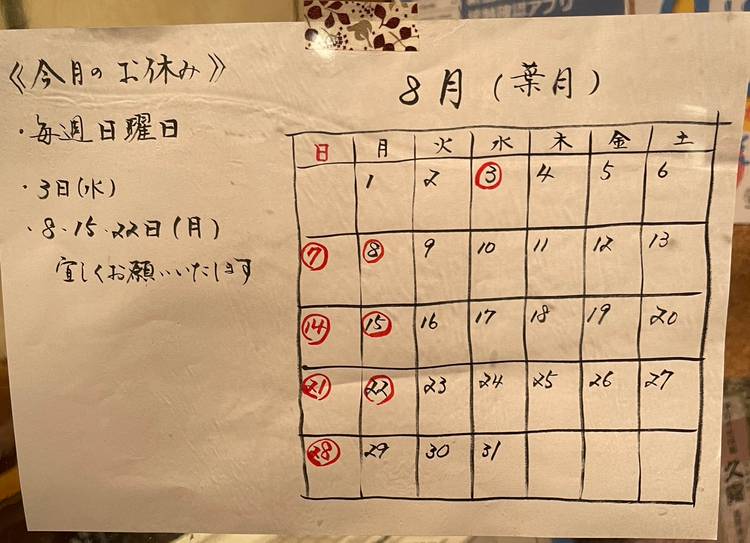 《今月のお休み》
・毎週日曜日
・3日(水)
・8・15・22日(月)
宜しくお願いいたします
8月(葉月)
日 月 火 水 木 金 土
1 2 3 4 5 6
7 8 9 10 11 12 13
14 15 16 17 18 19 20
21 22 23 24 25 26 27
28 29 30 31